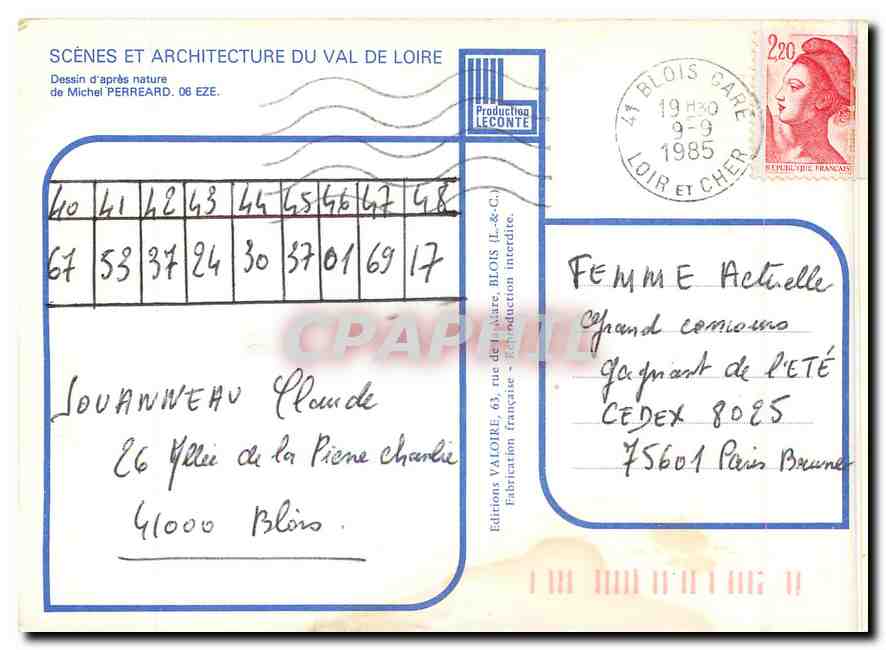 SCÈNES ET ARCHITECTURE DU VAL DE LOIRE
Dessin d'après nature
de Michel PERREARD. 06 EZE.
Production
LECONTE
41 BLOIS GARE
19 H30
9-9
1985
LOIR ET CHER
2,20
REPUBLIQUE FRANCAISE
40 41 42 43 44 45 46 47 48
67 53 37 24 30 37 01 69 17
JOUANNEAU Claude
26 Allée de la Pierre
41000 Blois.
Editions VALOIRE, 63, rue de la Mare, BLOIS (L.-&-C.)
Fabrication française - Reproduction interdite.
CPAPHIL
FEMME Actuelle
Grand concours
gagnant de l'ETÉ
CEDEX 8025
75601 Paris Brune